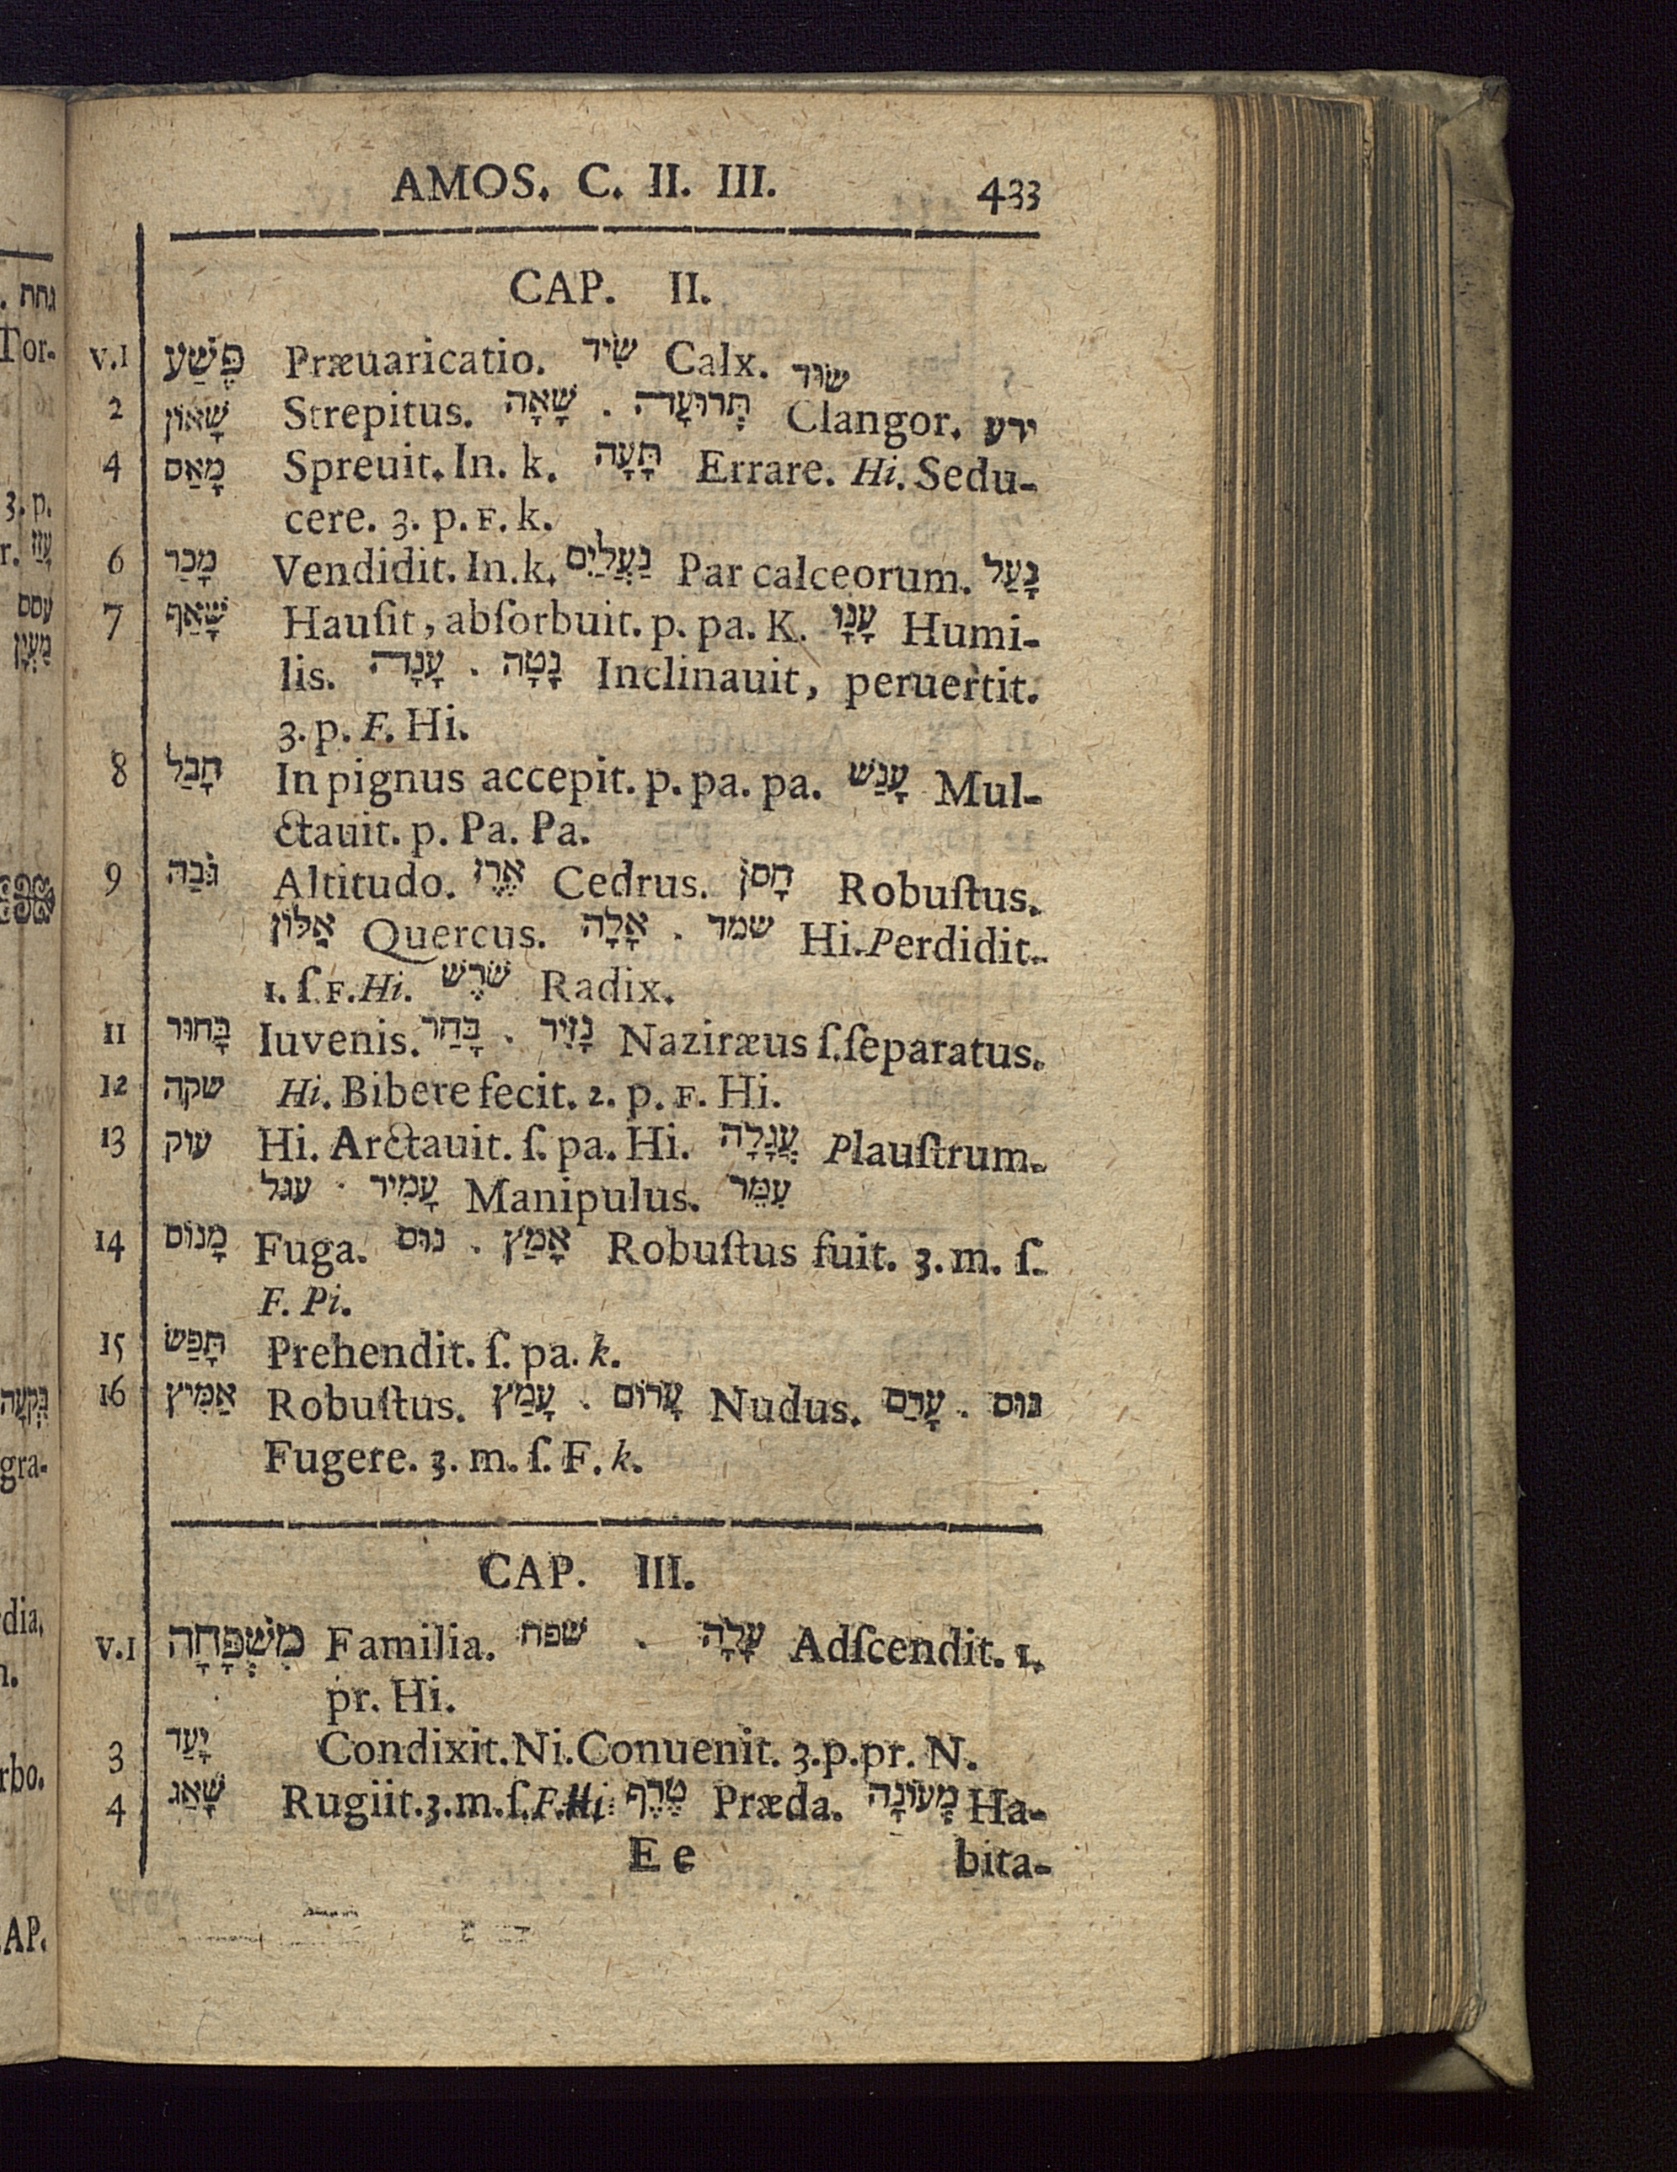 AMOS. C. II. III. 433
CAP. II.
v.1 פֶּשַׁע Præuaricatio. שִׂיד Calx. שׂוּד
2 שָׁאוֹן Strepitus. שָׁאָה . תְּרוּעָה Clangor. ירע
4 מָאַס Spreuit. In. k. תָּעָה Errare. Hi. Sedu-
cere. 3. p. F. k.
6 מָכַר Vendidit. In. k. נַעֲלַיִם Par calceorum. נָעַל
7 שָׁאַף Hauſit, abſorbuit. p. pa. K. עָנָו Humi-
lis. עָנָה . נָטָה Inclinauit, peruertit.
3. p. F. Hi.
8 חָבַל In pignus accepit. p. pa. pa. עָנַשׁ Mul-
ctauit. p. Pa. Pa.
9 גֹּבַהּ Altitudo. אֶרֶז Cedrus. חָסֹן Robuſtus.
אַלּוֹן Quercus. אָלָה . שמד Hi. Perdidit.
1. ſ. F. Hi. שֹׁרֶשׁ Radix.
11 בָּחוּר Iuvenis. בָּחַר . נָזִיר Naziræus ſ. ſeparatus.
12 שקה Hi. Bibere fecit. 2. p. F. Hi.
13 עוק Hi. Arctauit. ſ. pa. Hi. עֲגָלָה Plauſtrum.
עגל . עָמִיר Manipulus. עִמֵּר
14 מָנוֹס Fuga. נוּס . אָמַץ Robuſtus fuit. 3. m. ſ.
F. Pi.
15 תָּפַשׂ Prehendit. ſ. pa. k.
16 אַמִּיץ Robuſtus. עָמַץ . עָרוֹם Nudus. עָרַם . נוּס
Fugere. 3. m. ſ. F. k.
CAP. III.
v.1 מִשְׁפָּחָה Familia. שפח . עָלָה Adſcendit. 1.
pr. Hi.
3 יָעַד Condixit. Ni. Conuenit. 3. p. pr. N.
4 שָׁאַג Rugiit. 3. m. ſ. F. Hi טֶרֶף Præda. מְעוֹנָה Ha-
E e bita-